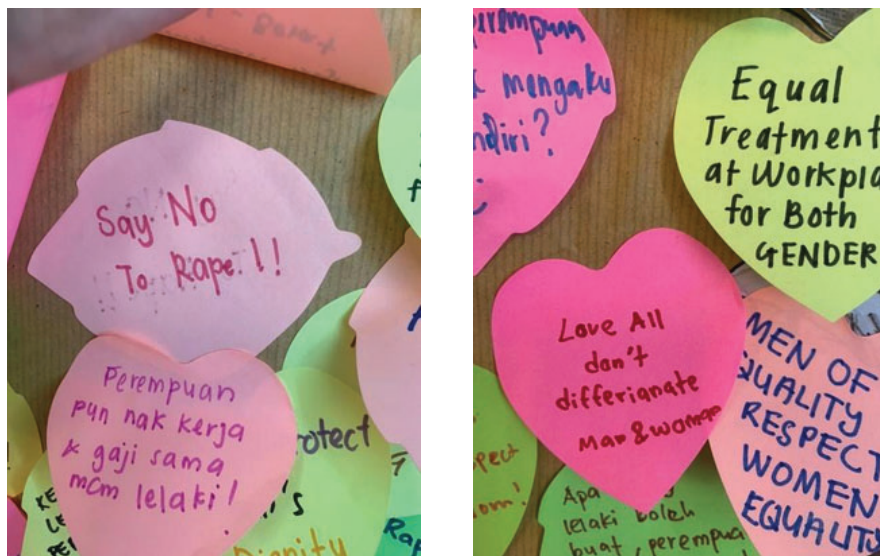 Say No
To Rape!!
Perempuan
pun nak kerja
& gaji sama
mcm lelaki!
otect
's
Dignity
Rap
erempuan
mengaku
ndiri?
Equal
Treatment
at Workpla
for Both
GENDER
Love All
don't
differianate
Man & woman
MEN OF
QUALITY
RESPECT
WOMEN
EQUALITY
pect
om!
Apa
lelaki boleh
buat, perempua